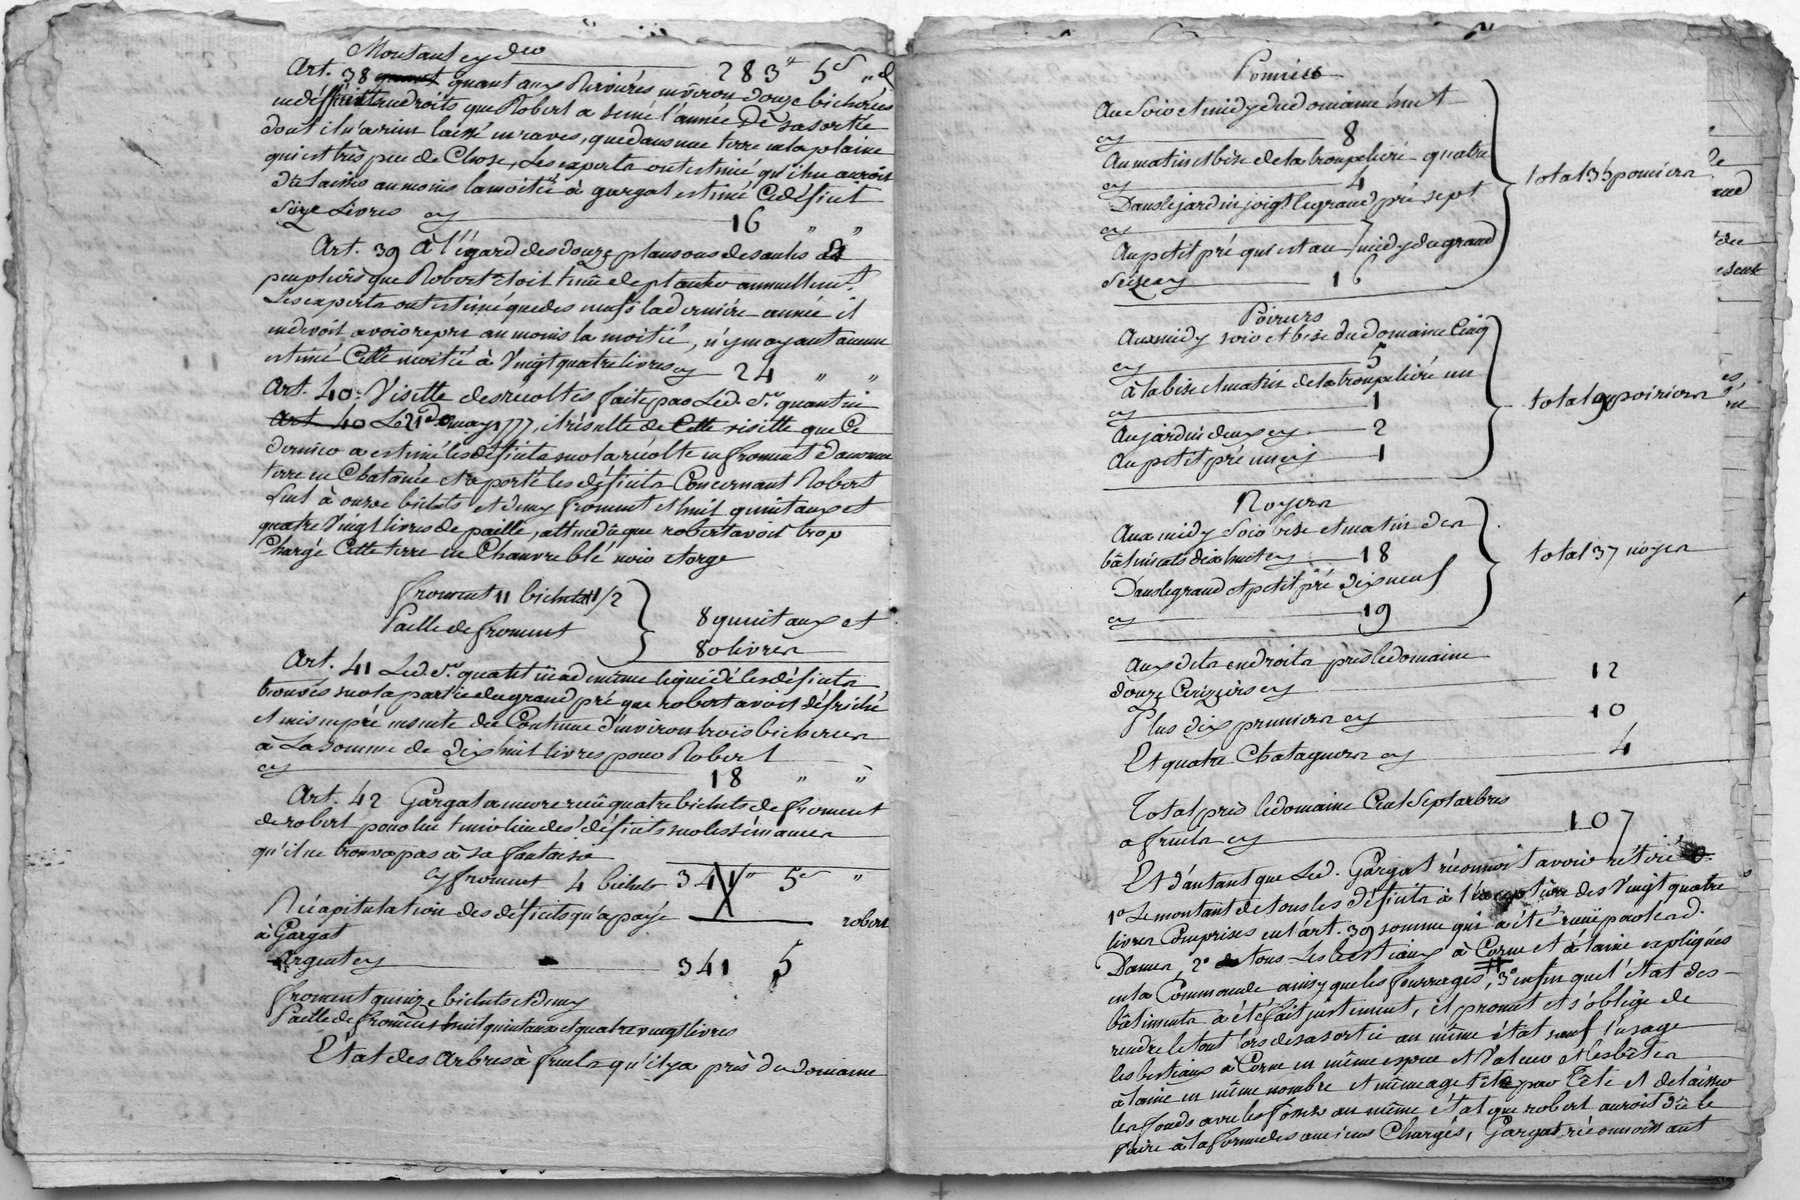 Montant cy dev 283ᵗᵗ 5ˢ " d
Art. 38 quant aux Rivières environ douze bicherées
endifférents endroits que Robert a semé l'année de sa sortie
dont il n'a rien laissé en raves, que dans une terre en la plaine
qui est très peu de Chose, Les experts ont estimé qu'il en auroit
dû laisser au moins la moitié à gargat estimé Ce déficit
Seize Livres cy 16 " "
Art. 39 à l'égard des douze plansons de saules et
peupliers que Robert étoit tenu de planter annuellement.
Les experts ont estimé que des neufs la dernière année il
en devoit avoir repri au moins la moitié, n'y en ayant aucun
estimé Cette moitié à Vingt quatre livres cy 24 " "
Art. 40. Visitte des récoltes faite par Led. Sʳ quantin
Art. 40 Le 21 may 1777, il résulte de Cette visitte que Ce
dernier a estimé les déficits sur la récolte en froment dans une
terre en Chatanée et a porté les déficits Concernant Robert
Seul à onze bichets et demy froment et huit quintaux et
quatre Vingt livres de paille, attendu que robert avoit trop
Chargé Cette terre en Chanvre blé noir et orge
froment 11 bichets 1/2
Paille de froment 8 quintaux et
80 livres
Art. 41 Led. Sʳ quantin a de même liquidé les déficits
trouvés sur la partie du grand pré que robert avoit défriché
et mis en pré ensuite de Contenue d'environ trois bicherées
à La somme de dix huit livres pour Robert
cy 18 " "
Art. 42 Gargat a encore reçu quatre bichets de froment
de robert pour lui tenir lieu des déficits sur les semances
qu'il ne trouva pas à sa fantaisie
cy froment 4 bichets 341ᵗᵗ 5ˢ "
Récapitulation des déficits qu'a payé robert
à Gargat
Argent cy 341 5
froment quinze bichets et demy
Paille de froment huit quintaux et quatre vingt livres
Etat des Arbres à fruits qu'il y a près du domaine
Pomiers
Au Soir et midy du domaine huit
cy 8
Au matin et bise de la troupelière quatre
cy 4
Dans le jardin joigt le grand pré sept
cy 7
Au petit pré qui est au midy du grand
Seize cy 16
total 35 pomiers
Poiriers
Aux midy soir et bise du domaine Cinq
cy 5
à la bise et matin de la troupelière un
cy 1
Au jardin deux cy 2
Au petit pré un cy 1
total 9 poiriers
Noyers
Aux midy Soir bise et matin des
bâtiments dix huit cy 18
Dans le grand et petit pré dix neuf
cy 19
total 37 noyers
Aux dits endroits près le domaine
douze Cerizieirs cy 12
Plus dix pruniers cy 10
Et quatre Chatagners cy 4
Total près le domaine Cent Sept arbres
a fruits cy 107
Et d'autant que Led. Gargat réconnoit avoir rétiré
1º Le montant de tous les déficits à l'exception des Vingt quatre
livres Comprises en l'art. 39 somme qui a été reçüe par lesd.
Dames, 2º tous Les bestiaux à Corne et à laine expliqués
en la Commande ainsy que les fourrages, 3º enfin que l'état des
bâtiments a été fait justement, il promet et s'oblige de
rendre le tout lors de sa sortie au même état sauf l'usage
les bestiaux à Corne en même espece et Valeur et les bêtes
à laine en même nombre et même age tête par tête et de laisser
les fonds avec les foins au même état que robert auroit dû le
faire à la forme des anciens Charges, Gargat réconnoissant